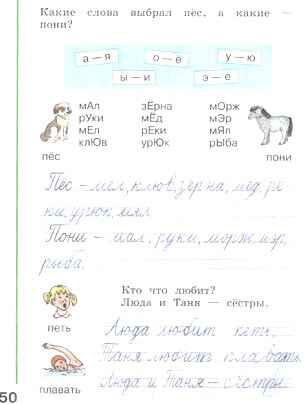 Какие слова выбрал пёс, а какие —
пони?
а — я о — ё у — ю
ы — и э — е
мАл зЕрна мОрж
рУки мЁд мЭр
мЕл рЕки мЯл
клЮв урЮк рЫба
пёс пони
Пёс – мел, клюв, зерна, мёд, ре
ки, урюк, мял
Пони – мал, руки, морж, мэр,
рыба.
Кто что любит?
Люда и Таня — сёстры.
петь Люда любит петь.
Таня любить плавать
плавать Люда и Таня – сёстры
50